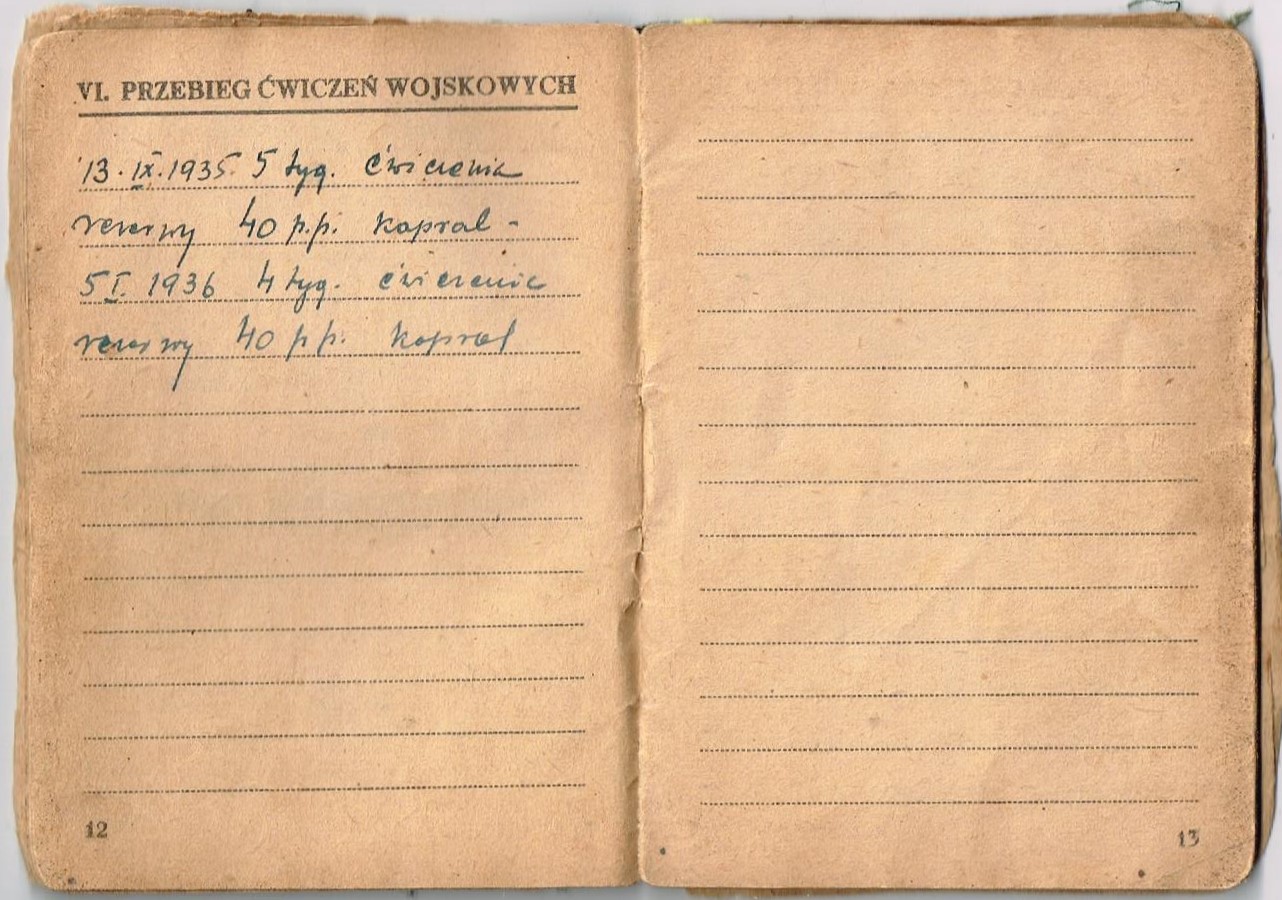 VI. PRZEBIEG ĆWICZEŃ WOJSKOWYCH
13.IX.1935. 5 tyg. ćwiczenia
rezerwy 40 p.p. kapral -
5 I. 1936 4 tyg. ćwiczenia
rezerwy 40 p.p. kapral
12
13